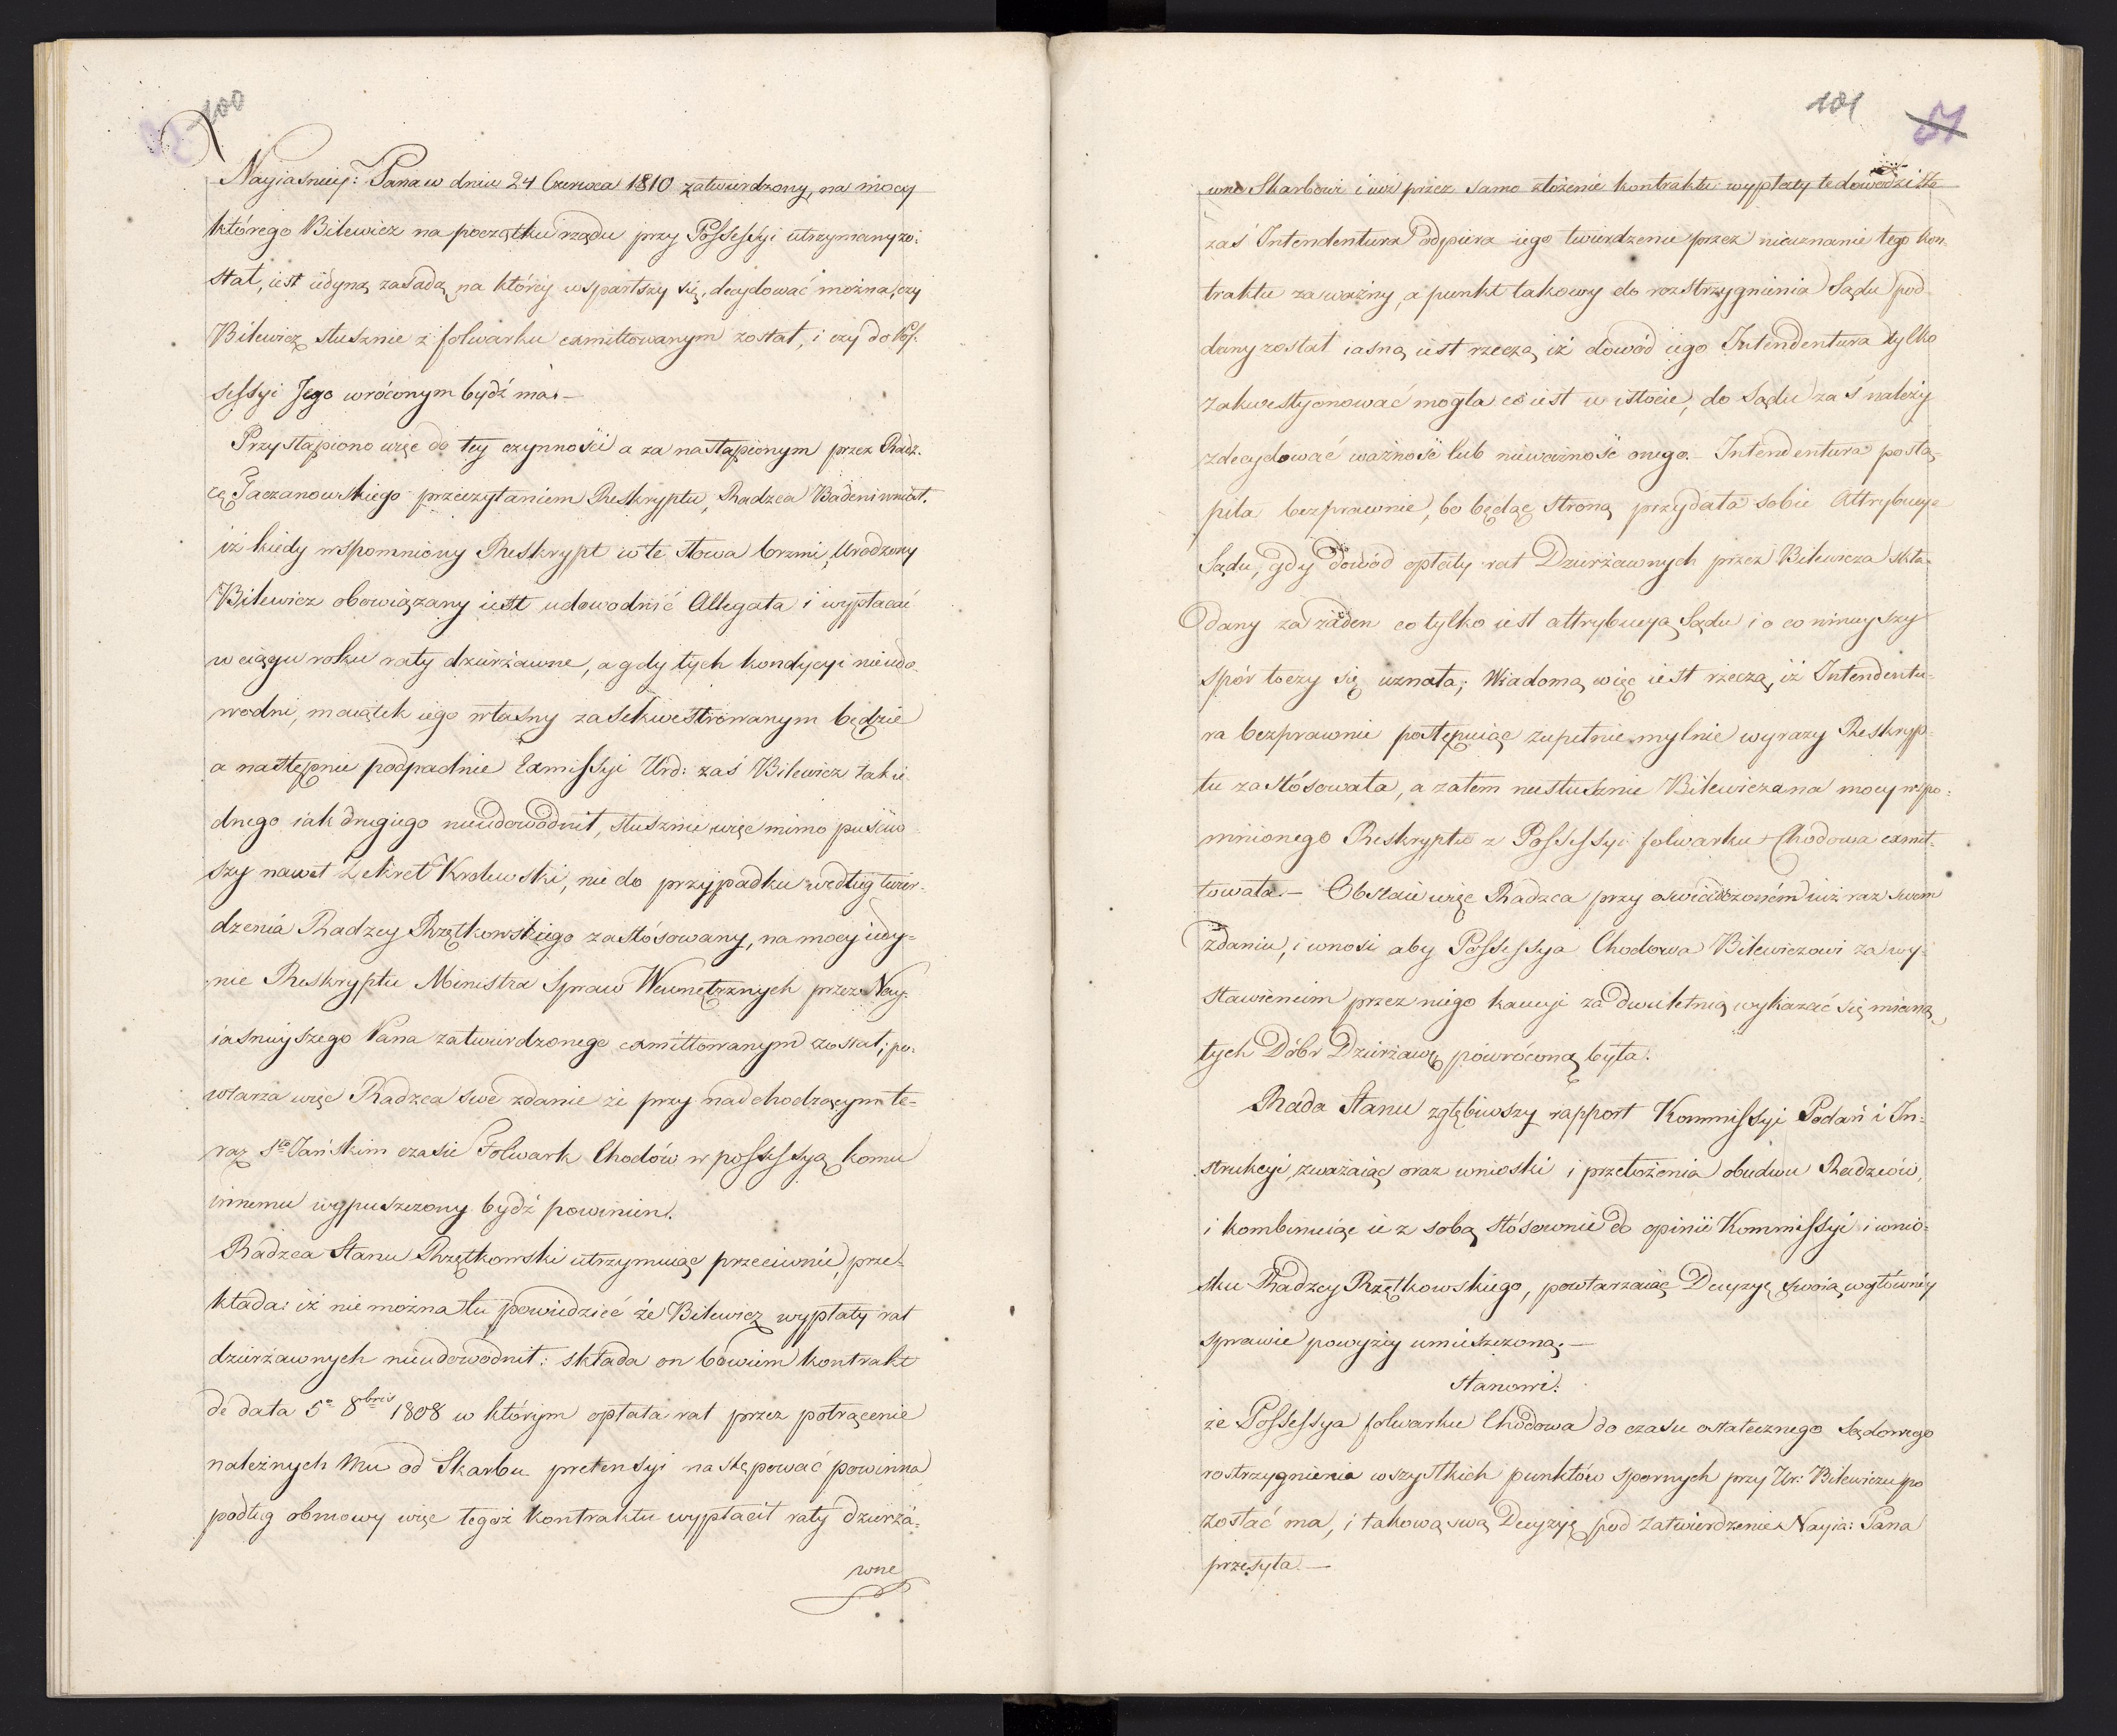 100
Nayiasniey: Pana w dniu 24 Czerwca 1810 zatwierdzony, na mocy
którego Bilewicz na początku rządu przy Possessyi utrzymany zo:
stał, iest iedyną zasadą na któréy wsparłszy się, decydować można, czy
Bilewicz słusznie z folwarku exmittowanym został, i czy do Pos.
sessyi Jego wróconym bydź ma. —
Przystąpiono więc do tey czynności a za nastąpionym przez Radz.
cę Taczanowskiego przeczytaniem Reskryptu, Radzca Badeni wniósł.
iż kiedy wspomniony Reskrypt w te słowa brzmi, Urodzony
Bilewicz obowiązany iest udowodnić Allegata i wypłacać
w ciągu roku raty dzierżawne, a gdy tych kondycyi nieudo.
wodni, maiątek iego własny zasekwestrowanym będzie
a następnie podpadnie Exmissyi Urd: zaś Bilewicz tak ie
dnego iak drugiego nieudowodnił, słusznie więc mimo puściw
szy nawet Dekret Krolewski, nie do przypadku według twier-
dzenia Radzcy Rzętkowskiego zastósowany, na mocy iedy=
nie Reskryptu Ministra Spraw Wewnętrznych przez Nay-
iasnieyszego Pana zatwierdzonego exmittowanym został; po.
wtarza więc Radzca swe zdanie że przy nadchodzącym te-
raz Sto Jańskim czasie Folwark Chodów w possessyą komu
innemu wypuszczony bydź powinien.
Radzca Stanu Rzętkowski utrzymuiąc przeciwnie, prze-
kłada: iż nie można tu powiedzieć że Bilewicz wypłaty rat
dzierżawnych nieudowodnił: składa on bowiem kontrakt
de data 5a 8bris 1808 w którym opłata rat przez potrącenie
należnych Mu od Skarbu pretensyi następować powinna
podług obmowy więc tegoż kontraktu wypłacił raty dzierża=
wne
101
51
wne Skarbowi i iuż przez samo złożenie kontraktu wypłaty te dowodzi że
zaś Intendentura odpiera iego twierdzenie przez nieuznanie tego kon-
traktu za ważny, a punkt takowy do rozstrzygnienia Sądu pod
dany został iasną iest rzeczą iż dowód iego Intendentura tylko
zakwestyonować mogła co iest w istocie, do Sądu zaś należy
zdecydować ważność lub nieważność onego. — Intendentura postą-
piła bezprawnie, bo będąc stroną przydała sobie Attrybucye
Sądu, gdy dowód opłaty rat Dzierżawnych przez Bilewicza skła-
dany za żaden co tylko iest attrybucyą Sądu i o co ninieyszy
spór toczy się uznała; Wiadomą więc iest rzeczą, iż Intendentu-
ra bezprawnie postępuiąc zupełnie mylnie wyrazy Reskryp-
tu zastósowała, a zatem niesłusznie Bilewicza na mocy wspo-
mnionego Reskryptu z Possessyi folwarku Chodowa exmit-
towała. — Obstaie więc Radzca przy oswiadczoném iuż raz swem
zdaniu, i wnosi aby Possessya Chodowa Bilewiczowi za wy-
stawieniem przez niego kaucyi za dwuletnią wykazać się mianą
tych Dóbr Dzierżawę powróconą była.
Rada Stanu zgłębiwszy rapport Kommissyi Podań i In-
strukcyi, zważaiąc oraz wnioski i przełożenia obudwu Radzców,
i kombinuiąc ie z sobą stósownie do opinii Kommissyi i wnio-
sku Radzcy Rzętkowskiego, powtarzaiąc Decyzyę swoią w główney
sprawie powyżéy umieszczoną. —
stanowi:
że Possessya folwarku Chodowa do czasu ostatecznego Sądowego
rostrzygnienia wszystkich punktów spornych przy Ur: Bilewiczu po
zostać ma, i takową swą Decyzyę pod Zatwierdzenie Nayia: Pana
przesyła. —